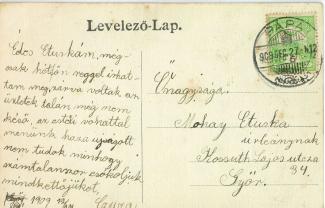 Levelező-Lap.
PÁPA
909 DEC 27
Édes Etuskám, még
csak hétfőn reggel írhat-
tam meg, zárva voltak az
üzletek talán még nem
késő, az estéli vonattal
menünk haza ujságot
nem tudok minthogy
számtalanszor csókoljuk
mindkettőjüket,
1909
Őnagysága.
Mohay Etuska
úrleánynak
Kossuth Lajos utcza
34.
Győr.